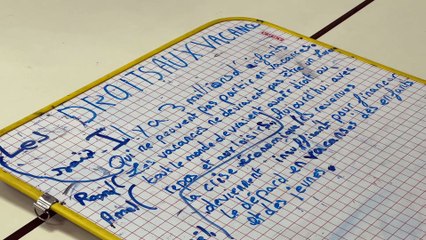 Les DROITS AUX VACANCES
Il y a 3 millions d'enfants
Qui ne peuvent pas partir en vacances
Les vacances ne devraient pas être un
tout le monde devrait avoir droit
repos et aux loisirs
Aujourd'hui avec
la crise
deviennent insuffisant pour financer
le départ en vacances des enfants
et des jeunes.